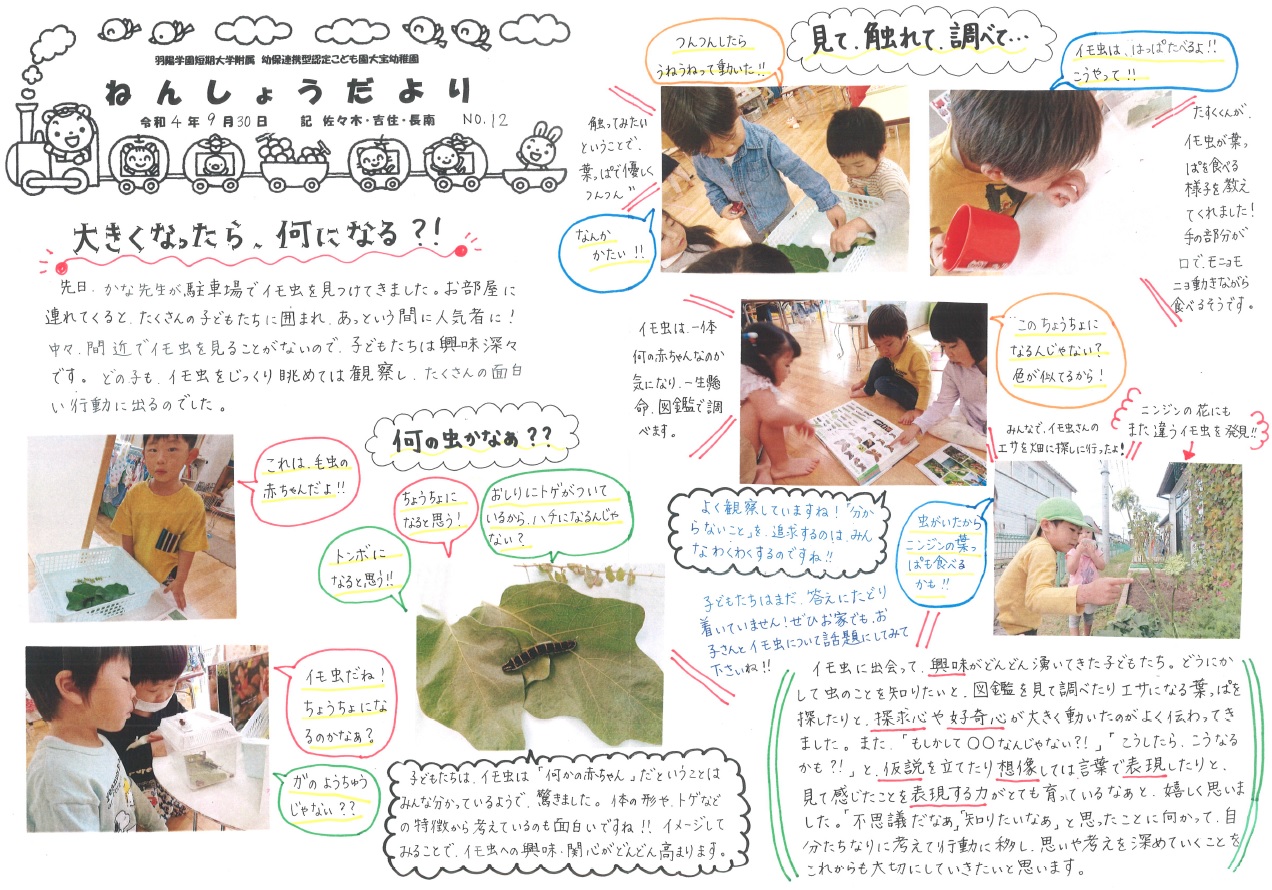 羽陽学園短期大学附属 幼保連携型認定こども園大宝幼稚園
ねんしょうだより
令和4年9月30日 記 佐々木・吉住・長南 NO.12
大きくなったら、何になる?!
先日、かな先生が駐車場でイモ虫を見つけてきました。お部屋に
連れてくると、たくさんの子どもたちに囲まれ、あっという間に人気者に!
中々、間近でイモ虫を見ることがないので、子どもたちは興味深々
です。どの子も、イモ虫をじっくり眺めては観察し、たくさんの面白
い行動に出るのでした。
何の虫かなぁ??
これは、毛虫の
赤ちゃんだよ!!
ちょうちょに
なると思う!
おしりにトゲがついて
いるから、ハチになるんじゃ
ない?
トンボに
なると思う!!
イモ虫だね!
ちょうちょにな
るのかなぁ?
ガのようちゅう
じゃない??
子どもたちは、イモ虫は「何かの赤ちゃん」だということは
みんな分かっているようで、驚きました。体の形や、トゲなど
の特徴から考えているのも面白いですね!!イメージして
みることで、イモ虫への興味・関心がどんどん高まります。
見て、触れて、調べて…
つんつんしたら
うねうねって動いた!!
触ってみたい
ということで、
葉っぱで優しく
つんつん〃
なんか
かたい!!
イモ虫は、はっぱたべるよ!!
こうやって!!
たすくくんが、
イモ虫が葉っ
ぱを食べる
様子を教え
てくれました!
手の部分が
口で、モニョモ
ニョ動きながら
食べるそうです。
イモ虫は、一体
何の赤ちゃんなのか
気になり、一生懸
命、図鑑で調
べます。
このちょうちょに
なるんじゃない?
色が似てるから!
よく観察していますね!「分か
らないこと」を、追求するのは、みん
なわくわくするのですね!!
子どもたちはまだ、答えにたどり
着いていません!ぜひお家でも、お
子さんとイモ虫について話題にしてみて
下さいね!!
みんなで、イモ虫さんの
エサを畑に探しに行ったよ!
ニンジンの花にも
また違うイモ虫を発見!!
虫がいたから
ニンジンの葉っ
ぱも食べる
かも!!
イモ虫に出会って、興味がどんどん湧いてきた子どもたち。どうにか
して虫のことを知りたいと、図鑑を見て調べたりエサになる葉っぱを
探したりと、探求心や好奇心が大きく動いたのがよく伝わってき
ました。また、「もしかして〇〇なんじゃない?!」「こうしたら、こうなる
かも?!」と、仮説を立てたり想像しては言葉で表現したりと、
見て感じたことを表現する力がとても育っているなぁと、嬉しく思いま
した。「不思議だなぁ」「知りたいなぁ」と思ったことに向かって、自
分たちなりに考えてり行動に移し、思いや考えを深めていくことを
これからも大切にしていきたいと思います。